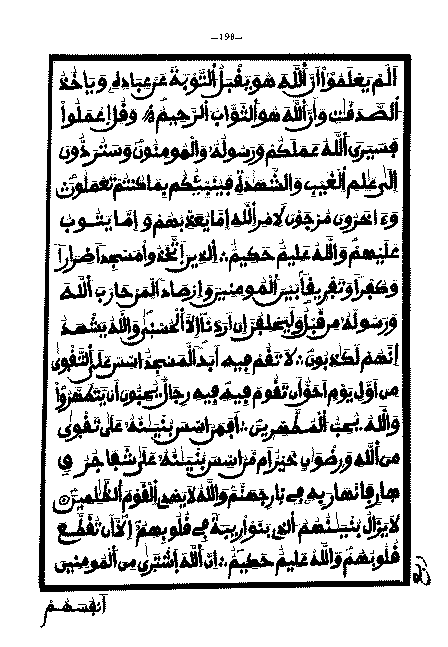 —198—
ألم يعلموا أن الله هو يقبل التوبة عن عباده وياخذ
الصدقت وأن الله هو التواب الرحيم وقل اعملوا
فسيرى الله عملكم ورسوله والمومنون وستردون
إلى علم الغيب والشهدة فينبئكم بما كنتم تعملون
وءاخرون مرجون لأمر الله إما يعذبهم وإما يتوب
عليهم والله عليم حكيم ∴ الذين اتخذوا مسجدا ضرارا
وكفرا وتفريقا بين المومنين وإرصادا لمن حارب الله
ورسوله من قبل وليحلفن إن أردنا إلا الحسنى والله يشهد
إنهم لكذبون ∴ لا تقم فيه أبدا لمسجد اسس على التقوى
من أول يوم احق أن تقوم فيه فيه رجال يحبون أن يتطهروا
والله يحب المطهرين ∴ أفمن اسس بنيـنه على تقوى
من الله ورضون خير ام من اسس بنيـنه على شفا جرف
هار فانهار به في نار جهنم والله لا يهدي القوم الظلمين
لا يزال بنيـنهم الذي بنوا ريبة في قلوبهم إلا أن تقطع
قلوبهم والله عليم حكيم ∴ إن الله اشترى من المومنين
ربع
أنفسهم